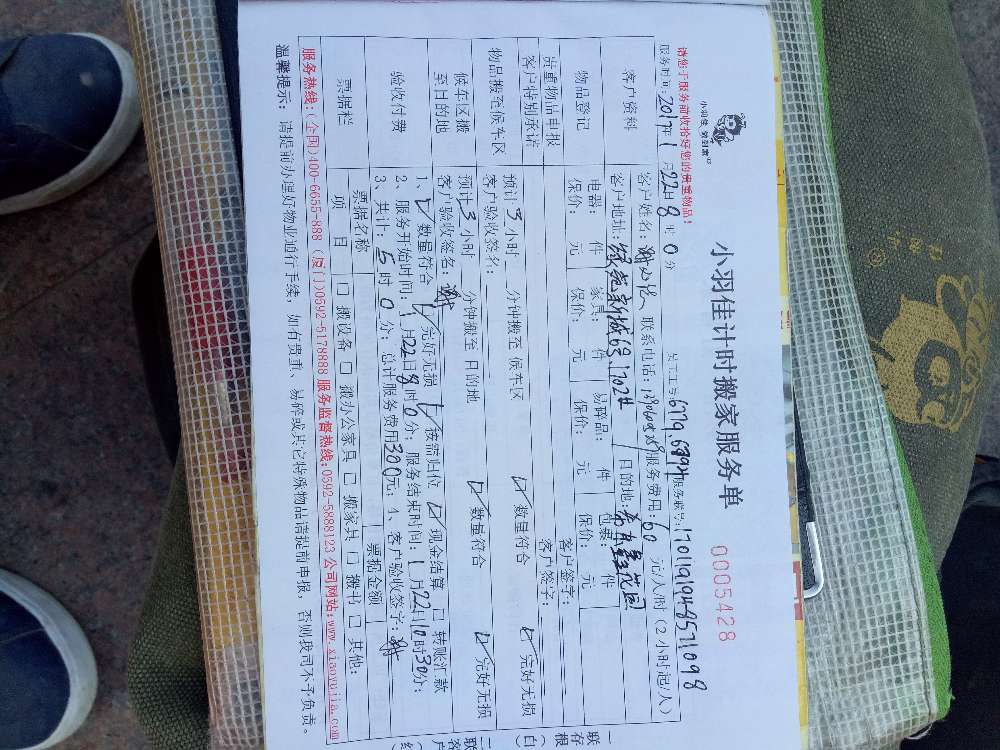 小羽佳计时搬家服务单
0005428
请您于服务前收拾好您的贵重物品！
服务时间：2017年1月22日8时0分 员工工号：6779,6394 服务账号：1701191948571098
客户资料
客户姓名：谢 联系电话： 服务费用：60元/人/时（2小时起/人）
客户地址：绿苑新城6号1702 目的地：
物品登记
电器： 件 家具： 件 易碎品： 件 包裹： 件
保价： 元 保价： 元 保价： 元 保价： 元
贵重物品申报 客户签字：
客户特别承诺 客户签字：
物品搬至候车区
预计3小时 分钟搬至 候车区 数量符合 完好无损
客户验收签名：
候车区搬至目的地
预计3小时 分钟搬至 目的地 数量符合 完好无损
客户验收签名：谢
验收付费
1、数量符合 完好无损 按需归位 现金结算 转账汇款
2、服务开始时间：1月22日8时0分；服务结束时间：1月22日10时30分；
3、共计：5时0分；总计服务费用300元；4、客户验收签字：谢
票据栏
票据名称 票据金额
项 目 搬设备 搬办公家具 搬家具 搬书 其他：
服务热线：（全国）400-6655-888（厦门）0592-5178888 服务监督热线：0592-5888123 公司网站：www.xiaoyujia.com
温馨提示： 请提前办理好物业通行手续，如有贵重、易碎或其它特殊物品请提前申报，否则我司不予负责。